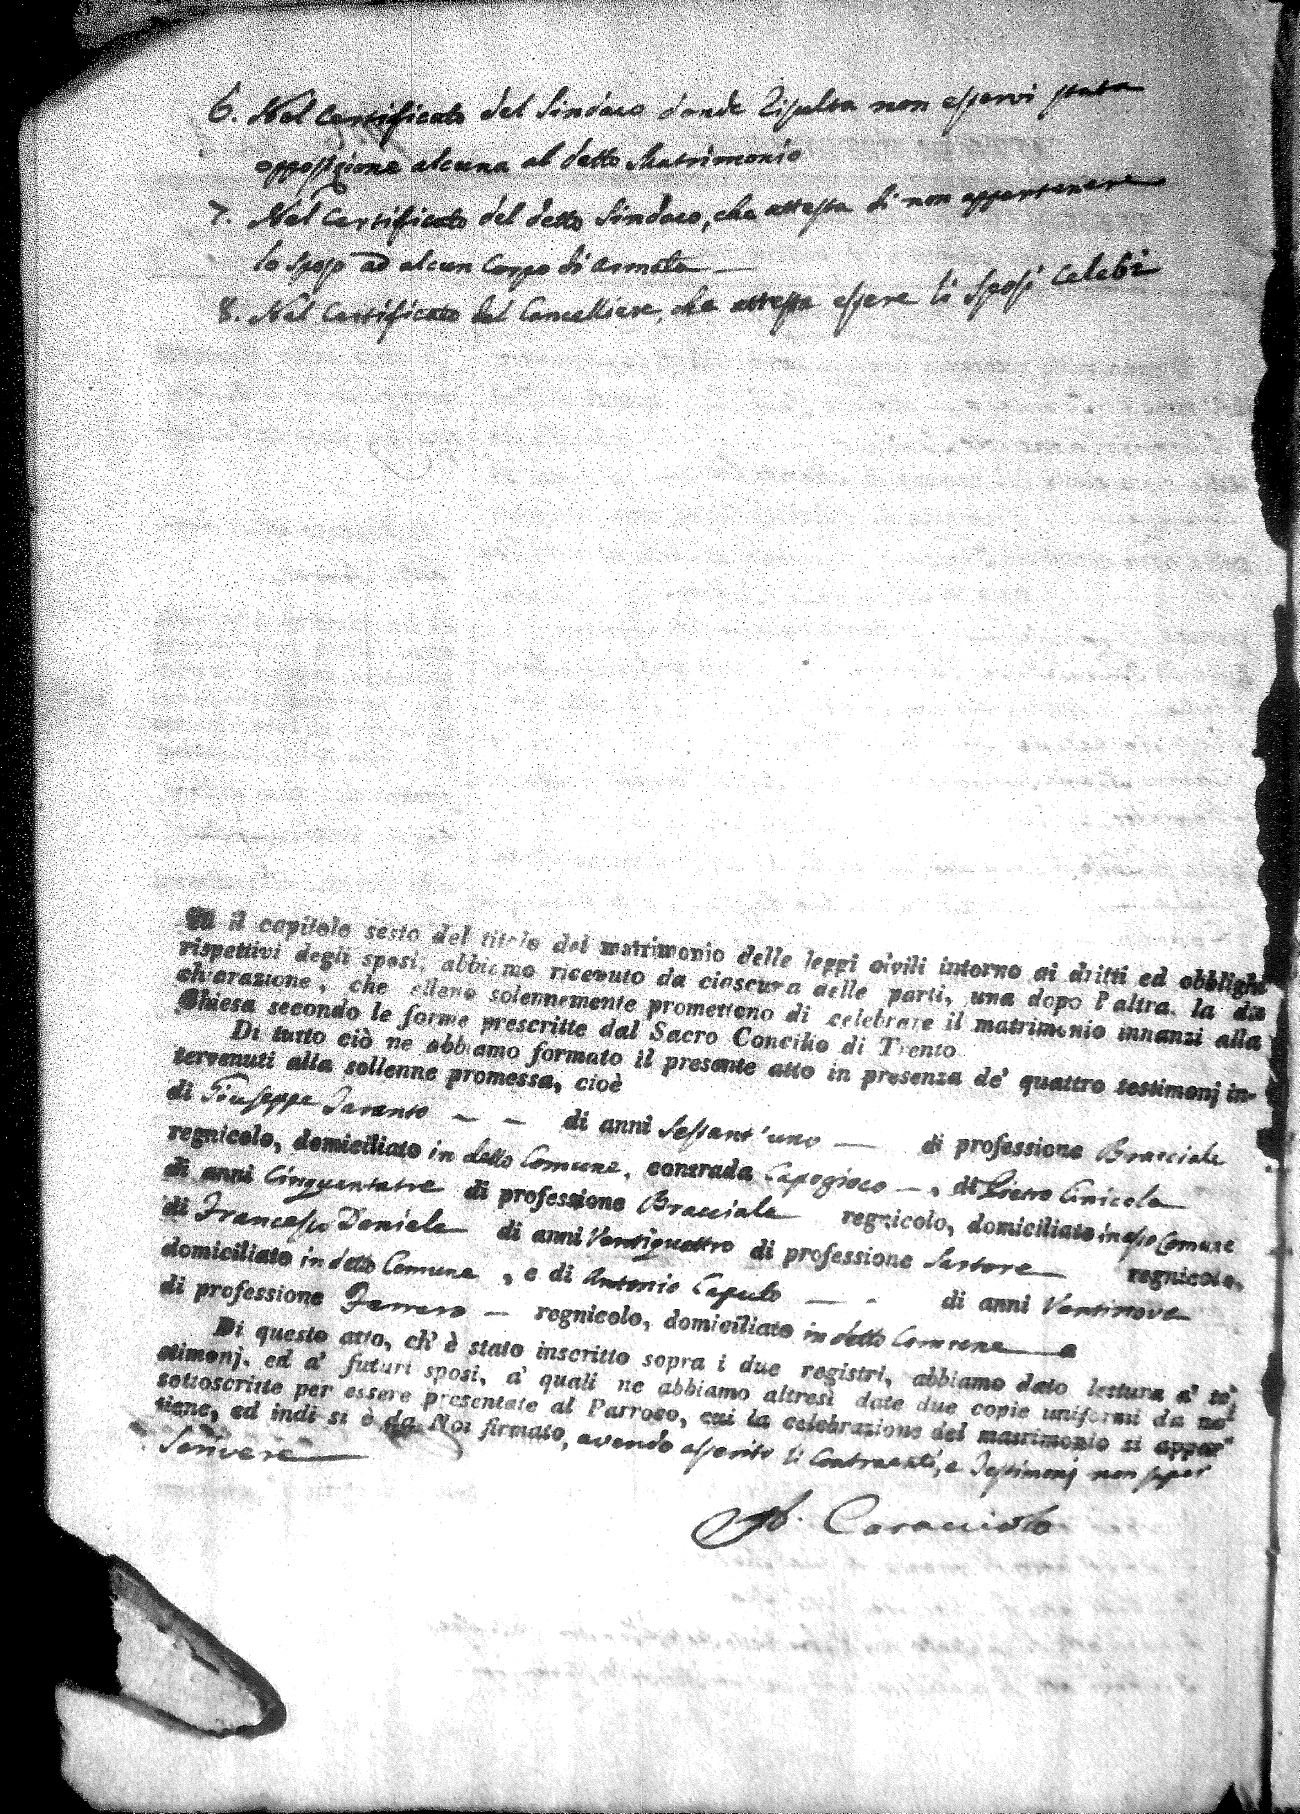 6. Nel Certificato del Sindaco donde Risulta non esservi stata
opposizione alcuna al detto Matrimonio
7. Nel Certificato del detto Sindaco, che attesta di non appartenere
lo sposo ad alcun Corpo di armata —
8. Nel Certificato del Cancelliere, che attesta essere li Sposi Celebi
il capitolo sesto del titolo del matrimonio delle leggi civili intorno ai dritti ed obblighi
rispettivi degli sposi, abbiamo ricevuto da ciascuna delle parti, una dopo l'altra, la di-
chiarazione, che elleno solennemente promettono di celebrare il matrimonio innanzi alla
Chiesa secondo le forme prescritte dal Sacro Concilio di Trento
Di tutto ciò ne abbiamo formato il presente atto in presenza de' quattro testimonj in-
tervenuti alla sollenne promessa, cioè
di Giuseppe Taranto — — di anni Sessant'uno — di professione Bracciale
regnicolo, domiciliato in detto Comune, contrada Capogioco —, di Pietro
di anni Cinquentatre di professione Bracciale regnicolo, domiciliato in esso Comune
di Francesco Daniele di anni Ventiquattro di professione Sartore — regnicolo,
domiciliato in detto Comune, e di Antonio Caputo — - di anni Ventinove
di professione Ferraro — regnicolo, domiciliato in detto Comune —
Di questo atto, ch' è stato inscritto sopra i due registri, abbiamo dato lettura a' te-
stimonj, ed a' futuri sposi, a' quali ne abbiamo altresì date due copie uniformi da noi
sottoscritte per essere presentate al Parroco, cui la celebrazione del matrimonio si appar-
tiene, ed indi si è da Noi firmato, avendo asserito li Contraenti, e Testimonj non saper
Scrivere —
Caracciolo